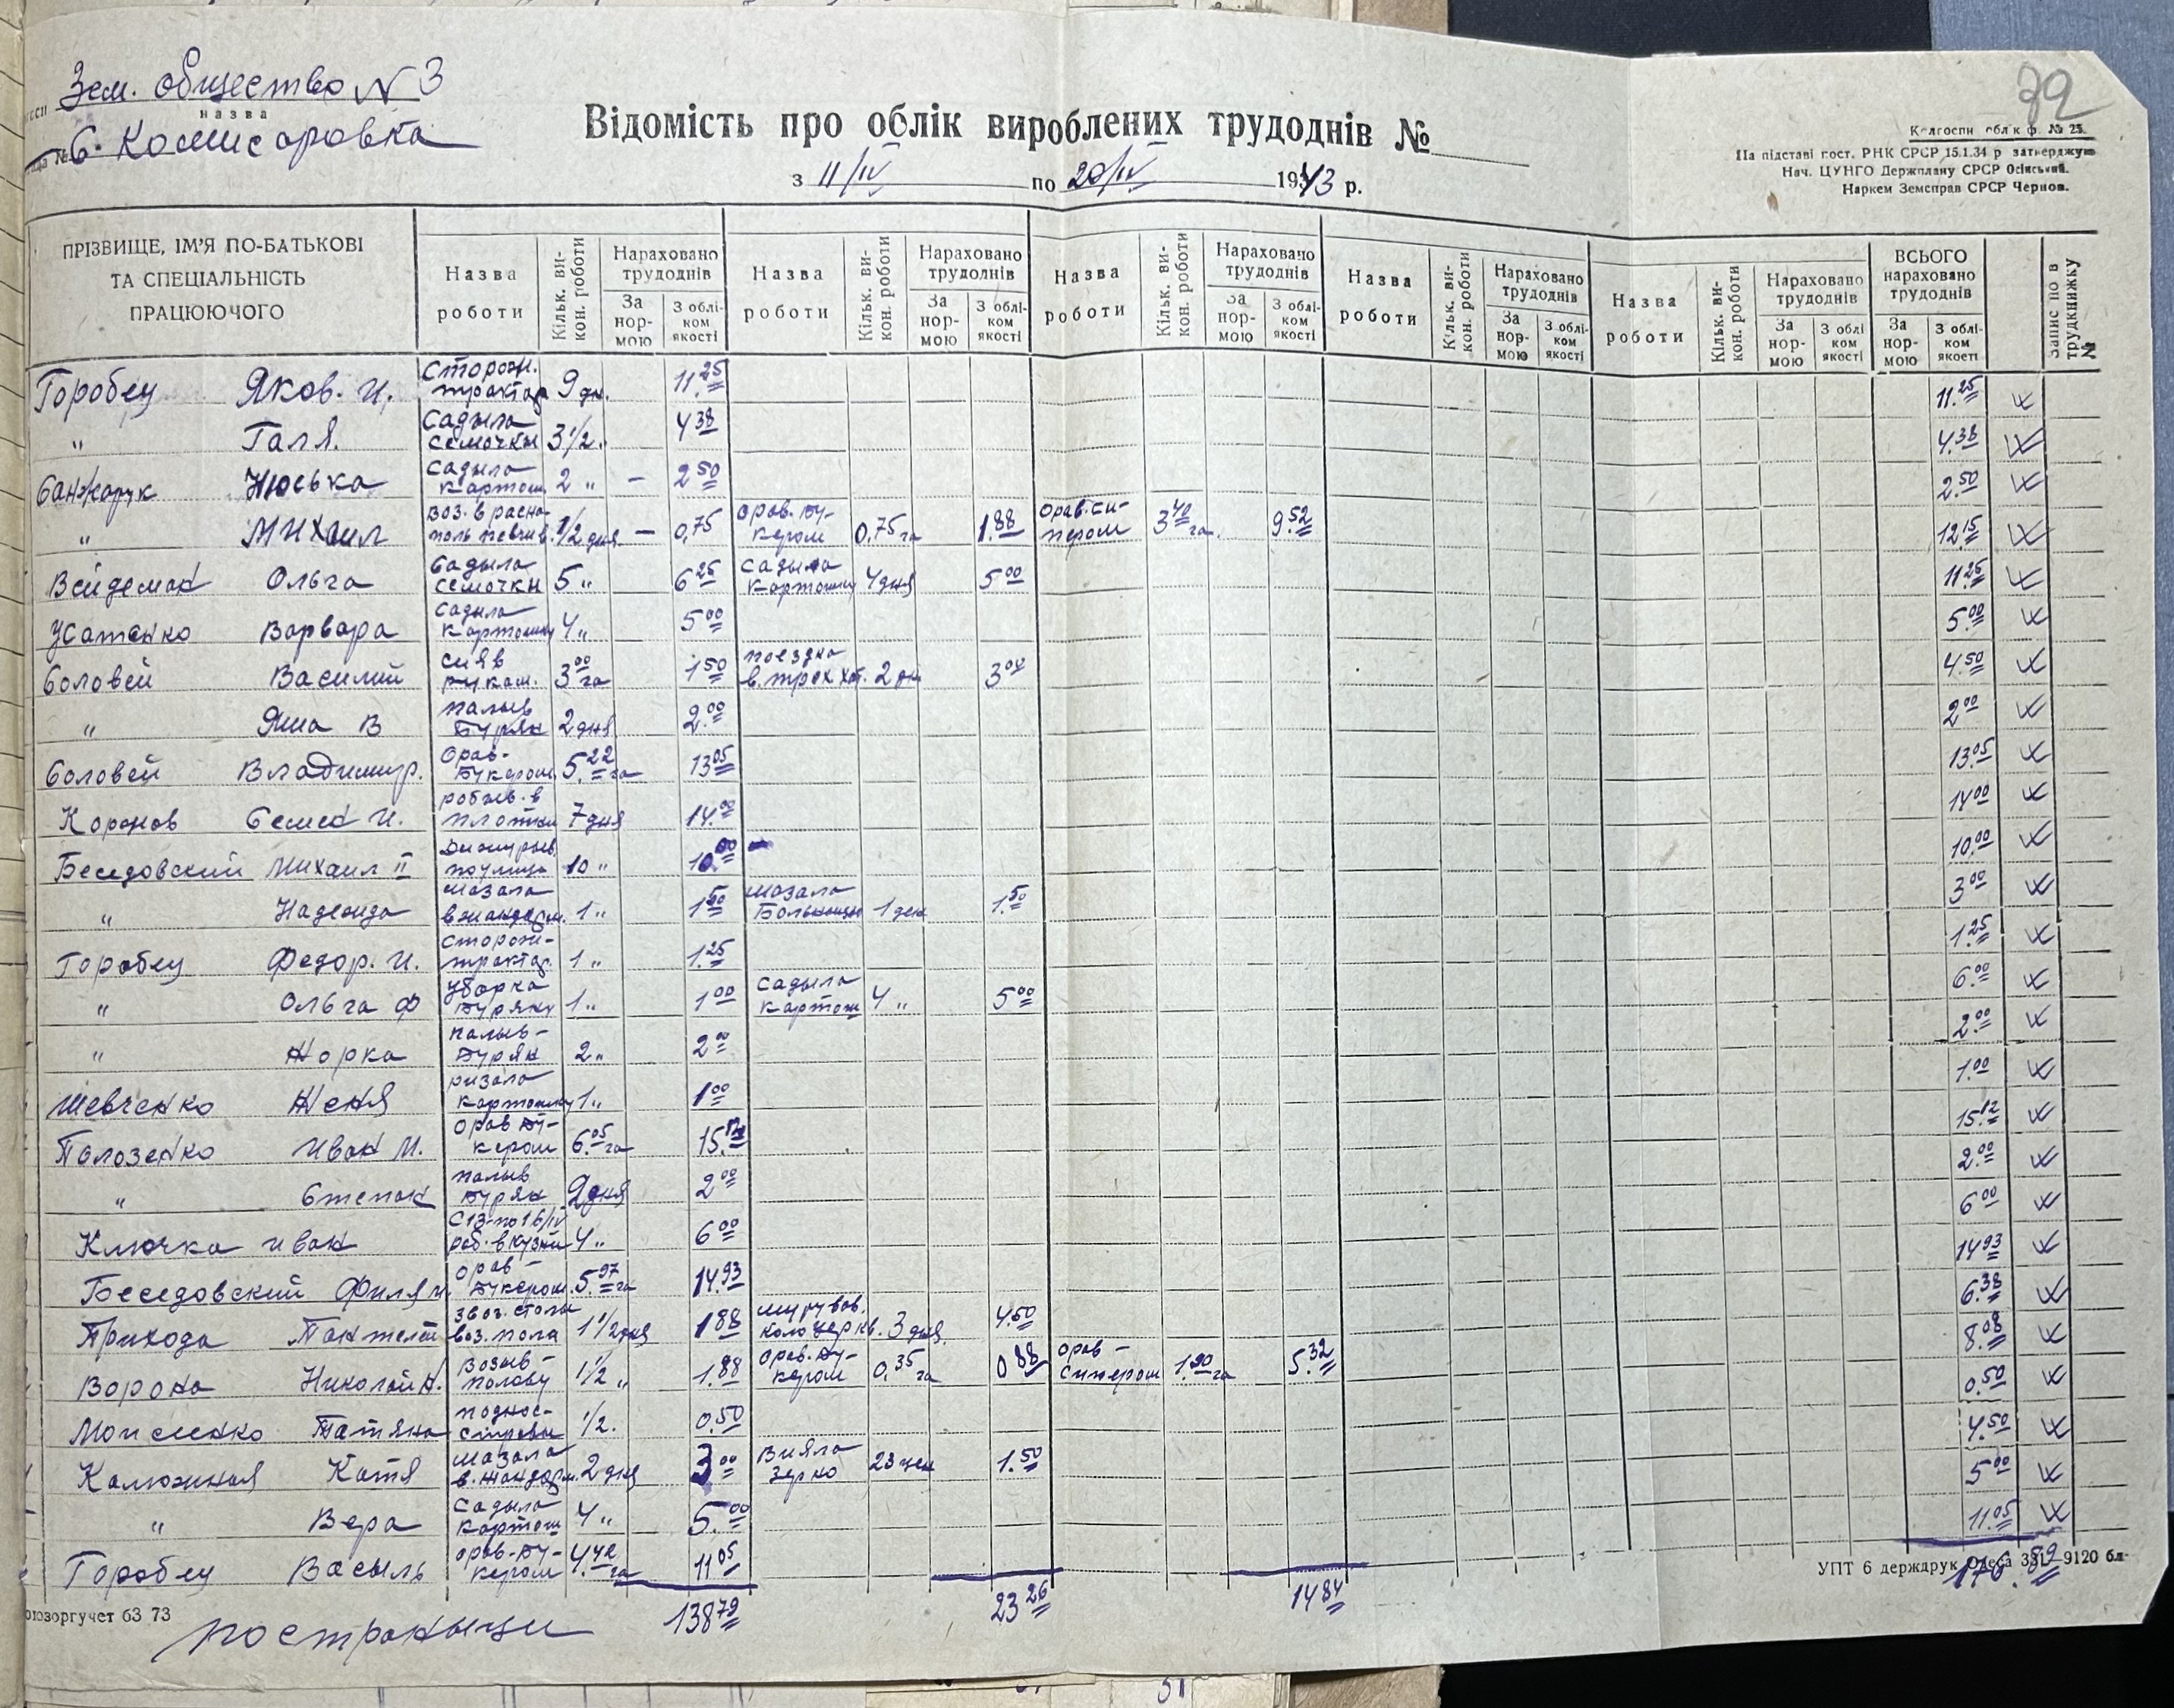 Зем. общество № 3
назва
С. Комисаровка
72
Відомість про облік вироблених трудоднів №
з 11/IV по 20/IV 1943 р.
Колгоспи обл к ф. № 25.
На підставі пост. РНК СРСР 15.1.34 р затверджую
Нач. ЦУНГО Держплану СРСР Осінський.
Наркем Земсправ СРСР Чернов.
ПРІЗВИЩЕ, ІМ'Я ПО-БАТЬКОВІ ТА СПЕЦІАЛЬНІСТЬ ПРАЦЮЮЧОГО
Назва роботи Кільк. викон. роботи Нараховано трудоднів За нормою З обліком якості
Назва роботи Кільк. викон. роботи Нараховано трудоднів За нормою З обліком якості
Назва роботи Кільк. викон. роботи Нараховано трудоднів За нормою З обліком якості
Назва роботи Кільк. викон. роботи Нараховано трудоднів За нормою З обліком якості
Назва роботи Кільк. викон. роботи Нараховано трудоднів За нормою З обліком якості
ВСЬОГО нараховано трудоднів За нормою З обліком якості
Запис по в трудкнижку №
Горобец Яков. И. сторож. трактор 9 дн. 11.25 11.25
" Галя. садыла семочки 3 1/2 " 4 38 4.38
Санжарук Нюська садыла картош. 2 " – 2 50 2.50
" Михаил воз. в расно- 1/2 дня – 0,75 орав. бу- кером 0,75 га 1.88 орав. си- пером 3 40 га. 9 52 12.15
Вейдеман Ольга садыла семочки 5 " 6 25 садыла картошку 4 дня 5 00 11.25
Усатенко Варвара садыла картошку 4 " 5 00 5.00
Соловей Василий сияв рукам. 3 00 га 1 50 поездка в. трех хат. 2 дн 3 00 4.50
" Яша В палыв бурян 2 дня 2.00 2 00
Соловей Владимир. орав- букером 5.22 га 13 05 13.05
Коронов Семен И. робыв. в плотни 7 дня 14.00 14 00
Беседовский Михаил II 10 " 10.00 10.00
" Надежда мазала в жандарм. 1 " 1 50 мазала больницу 1 ден 1.50 3 00
Горобец Федор. И. сторож- трактор. 1 " 1.25 1.25
" Ольга Ф уборка буряну 1 " 1 00 садыла картош 4 " 5 00 6 00
" Жорка палыв- бурян 2 " 2 00 2.00
Шевченко Женя ризала картошку 1 " 1 00 1.00
Полозенко Иван М. орав бу- кером 6.05 га 15.12 15.12
" Степан палыв бурян 2 дня 2 00 2.00
Ключка Иван с 13- по 16/IV роб. в кузни 4 " 6 00 6 00
Беседовский Филя И. орав- букером. 5.97 га 14.93 14 93
Прихода Пантелей звоз. столы воз. пола 1 1/2 дня 1 88 мурував. коло церкв. 3 дня 4.50 6.38
Ворона Николай Н. возыв- полову 1 1/2 " 1.88 орав. бу- кером 0.35 га 0 88 орав- сипером 1.90 га 5.32 8.08
Моисеенко Татяна поднос- 1/2. 0.50 0.50
Калюжная Катя мазала в. жандарм. 2 дня 3 00 вияла зерно 23 цен 1.50 4.50
" Вера садыла картош 4 " 5.00 5 00
Горобец Васыль орав- бу- кером 4.42 га 11 05 11.05
138 79 23 26 14 84 176.89
УПТ 6 держдрук Одеса 331—9120 бл-
юзоргучет 63 73
по странице